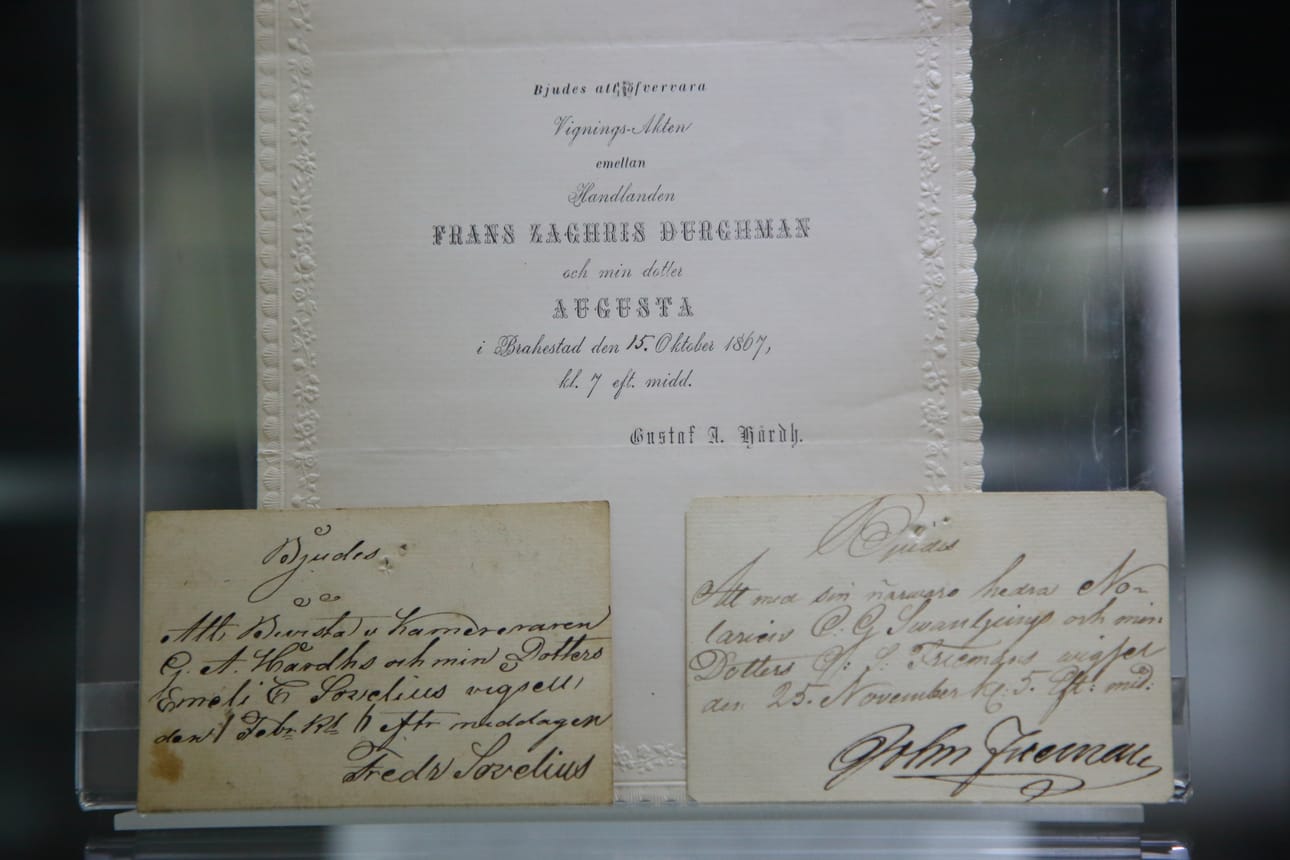 Bjudes att öfvervara
Vignings-Akten
emellan
Handlanden
FRANS ZACHRIS DURCHMAN
och min dotter
AUGUSTA
i Brahestad den 15. Oktober 1867,
kl. 7 eft. midd.
Gustaf A. Hårdh.
Bjudes
Att Bevista Kamereraren
G. A. Hårdhs och min Dotters
Emeli C Sovelius vigsell,
den 1 Febr. Kl. eftr middagen
Fredr Sovelius
Bjudes
Att med sin närwaro hedra No-
tariens C. G. Swanljungs och min
Dotters S. Friemans wigsel
den 25. November Kl. 5. Eft: mid:
John Frieman